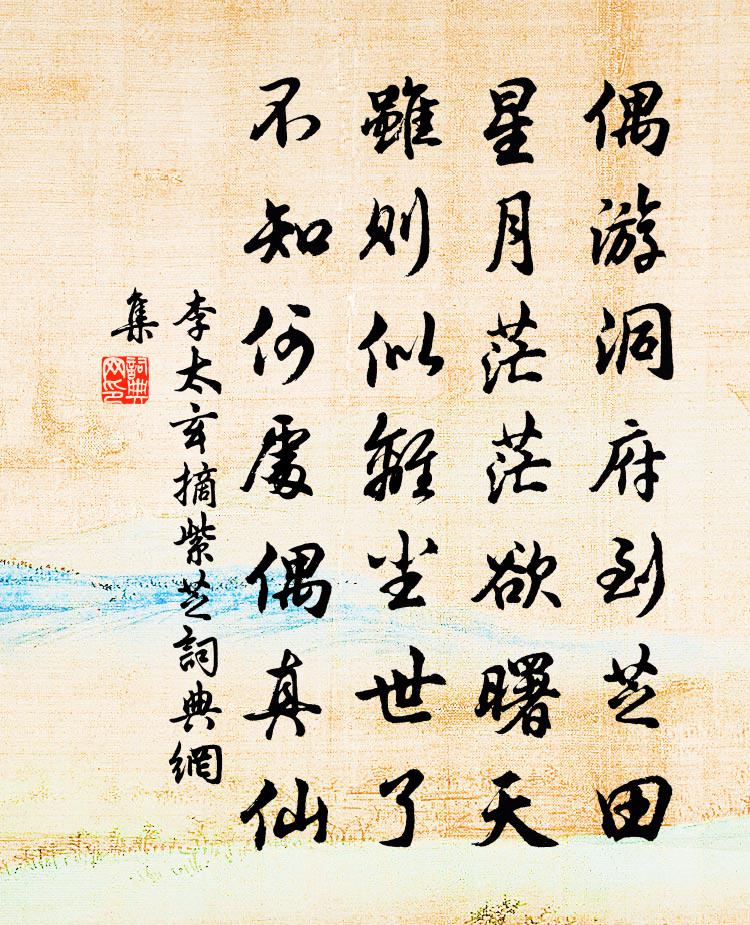 偶游洞府到芝田
星月茫茫欲曙天
雖則似離尘世了
不知何處偶真仙
李太玄摘紫芝詞典網
集
詞典
网印